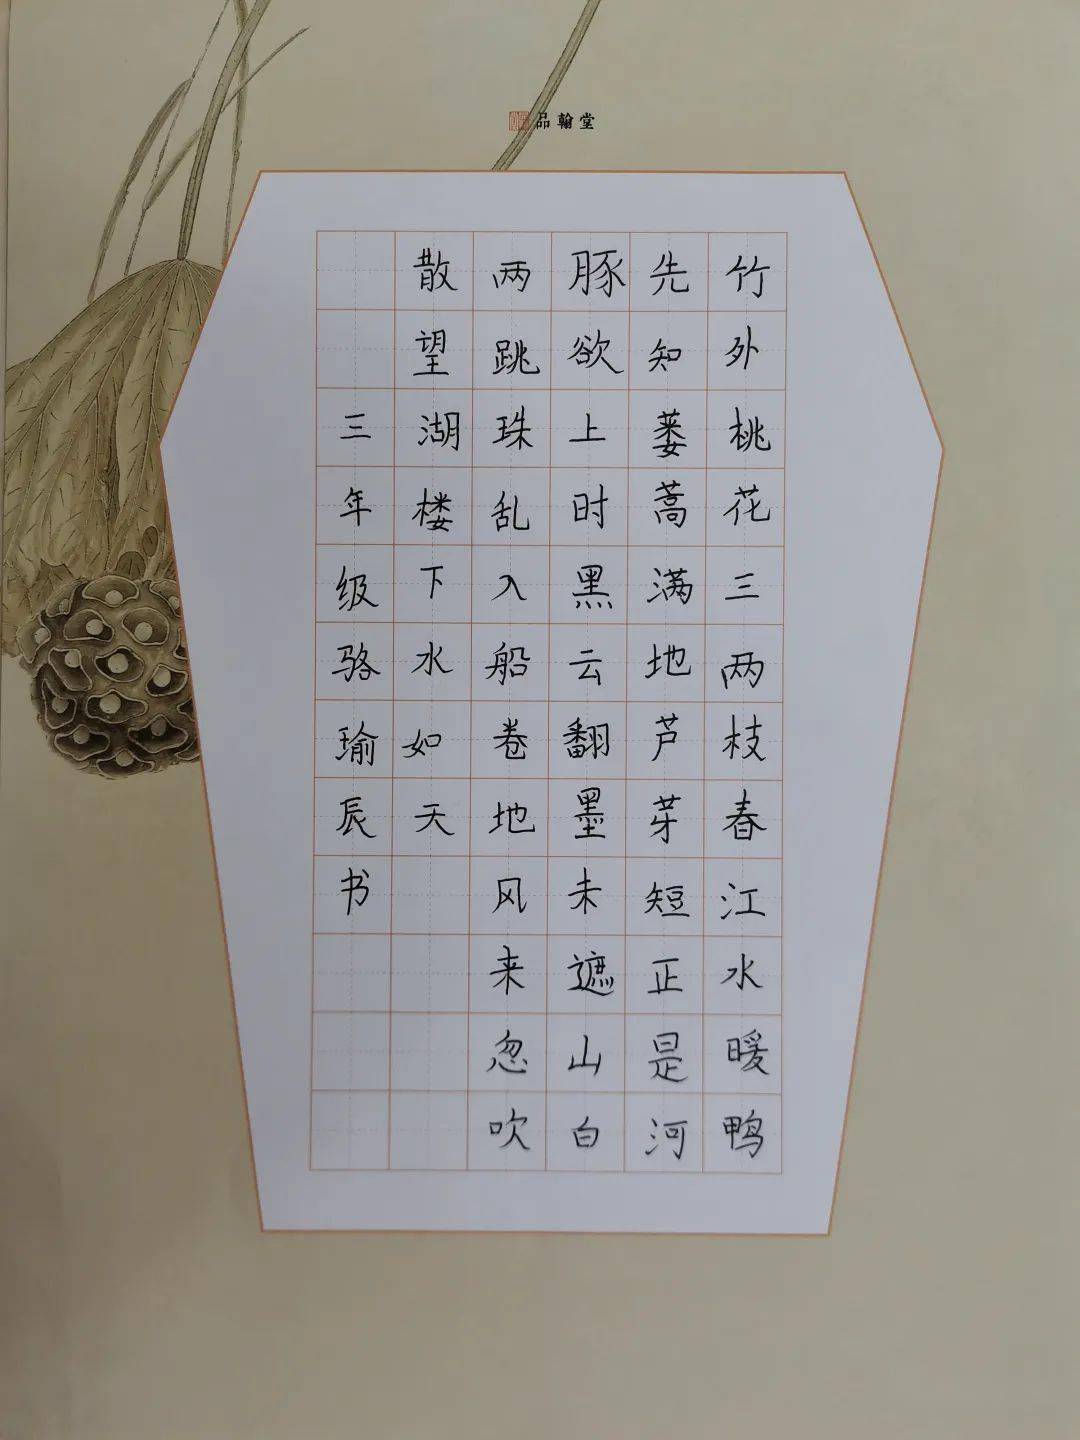 品翰堂
竹外桃花三两枝春江水暖鸭
先知蒌蒿满地芦芽短正是河
豚欲上时黑云翻墨未遮山白
两跳珠乱入船卷地风来忽吹
散望湖楼下水如天
三年级骆瑜辰书